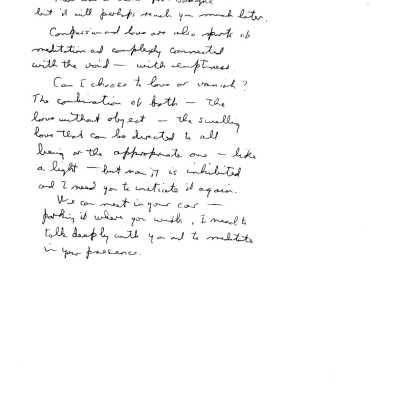 but it will perhaps reach you much later.
Compassion and love are also parts of
meditation and complexly connected
with the void — with emptiness
Can I choose to love or vanish?
The combination of both — the
love without object — the swelling
love that can be directed to all
being or the appropriate one — like
a light — but now it is inhibited
and I need you to initiate it again.
We can meet in your car —
parking it where you wish, I need to
talk deeply with you and to meditate
in your presence.